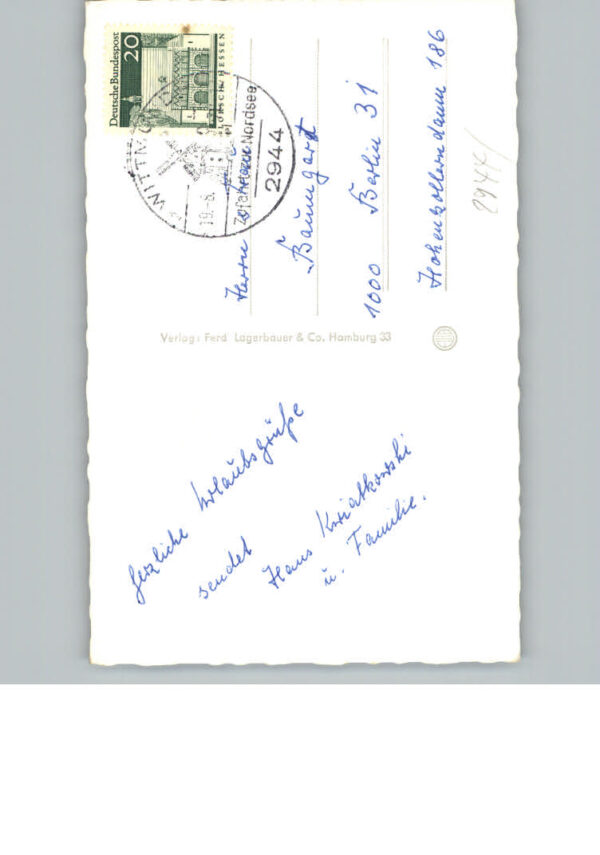 Herzliche Urlaubsgrüße
sendet
Hans Kwiatkowski
u. Familie.
Verlag: Ferd. Lagerbauer & Co. Hamburg 33
Deutsche Bundespost
20
LORSCH/HESSEN
WITTM
19.-8.
Zufahrt zur Nordsee
2944
Herrn
Baumgart
1000 Berlin 31
Hohenzollerndamm 186
2944/